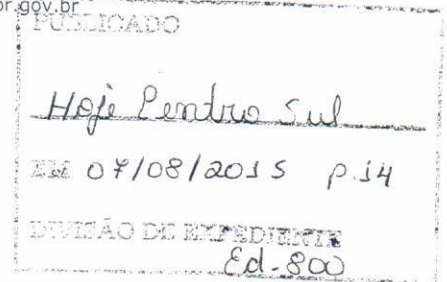 or.gov.br
PUBLICADO
Hoje Centro Sul
EM 07/08/2015 p.14
DIVISÃO DE EXPEDIENTE
Ed-800